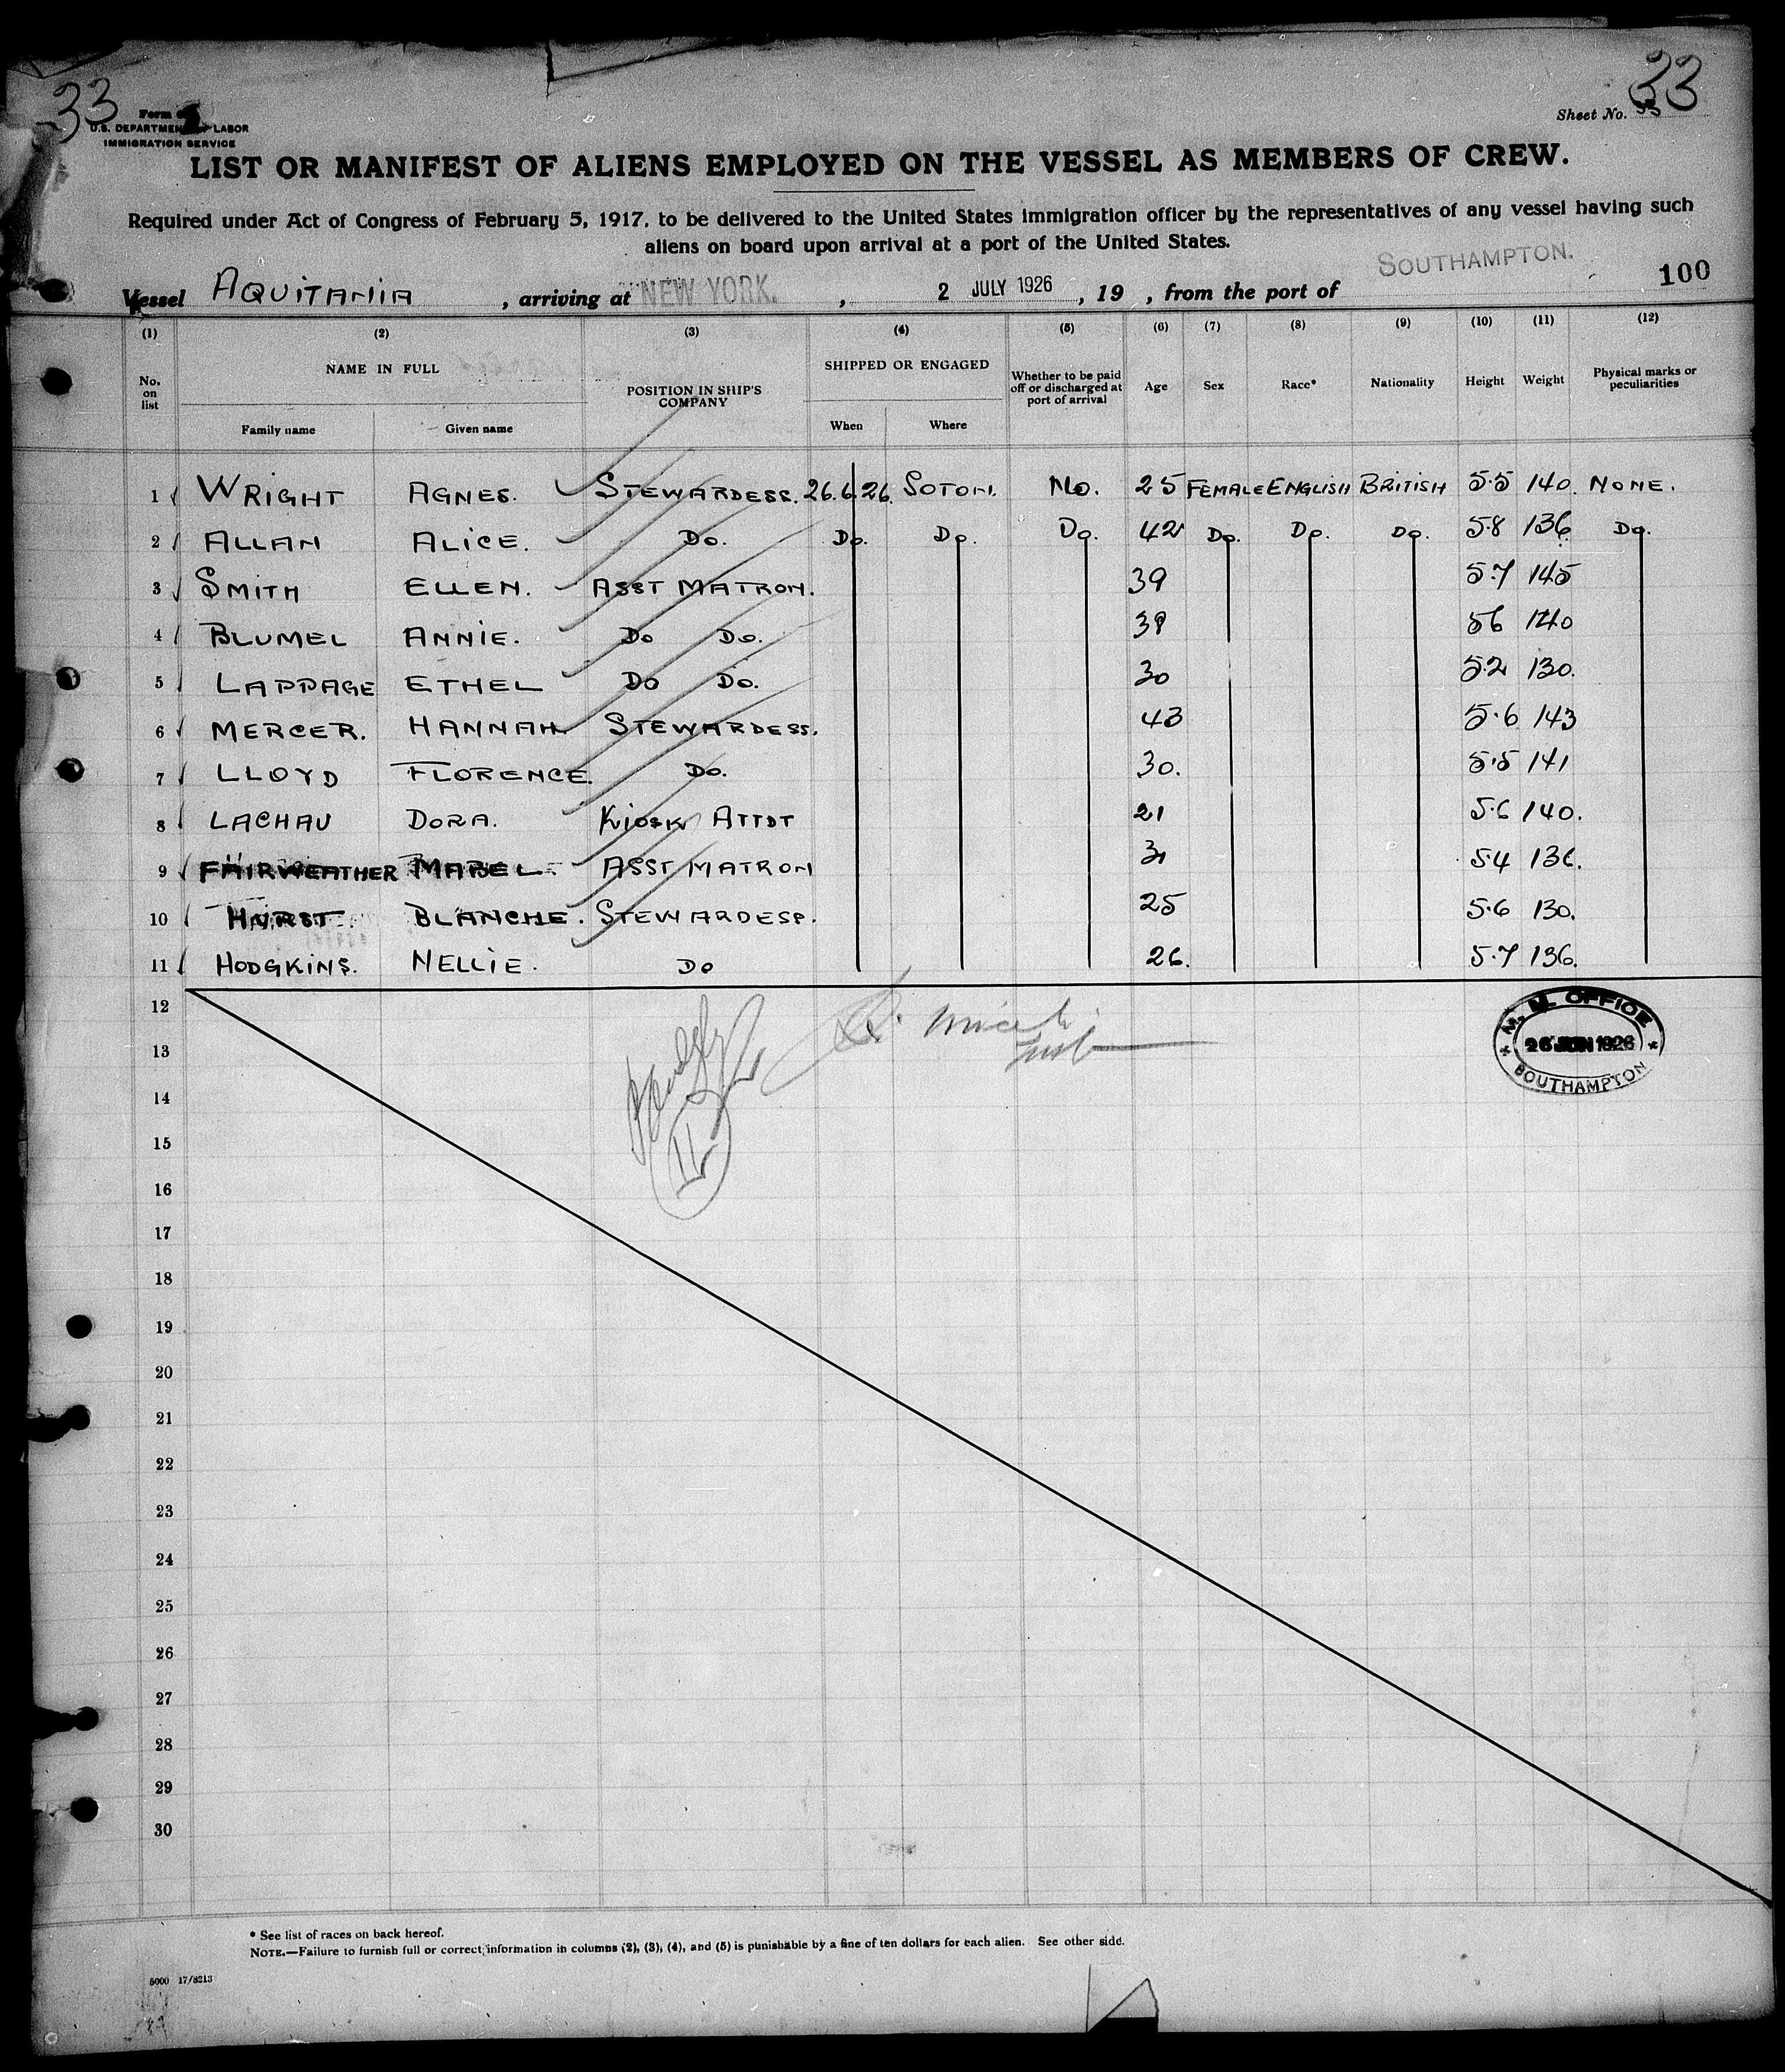 33
33
Form
U.S. DEPARTMENT OF LABOR
IMMIGRATION SERVICE
Sheet No. 33
LIST OR MANIFEST OF ALIENS EMPLOYED ON THE VESSEL AS MEMBERS OF CREW.
Required under Act of Congress of February 5, 1917, to be delivered to the United States immigration officer by the representatives of any vessel having such
aliens on board upon arrival at a port of the United States.
Vessel AQUITANIA, arriving at NEW YORK, 2 JULY 1926, 19 , from the port of SOUTHAMPTON. 100
(1) (2) (3) (4) (5) (6) (7) (8) (9) (10) (11) (12)
No. on list NAME IN FULL POSITION IN SHIP'S COMPANY SHIPPED OR ENGAGED Whether to be paid off or discharged at port of arrival Age Sex Race* Nationality Height Weight Physical marks or peculiarities
Family name Given name When Where
1 WRIGHT AGNES. STEWARDESS. 26.6.26. SOTON. No. 25 FEMALE ENGLISH BRITISH 5.5 140. NONE.
2 ALLAN ALICE. Do. Do. Do. Do. 42 Do. Do. Do. 5.8 136 Do.
3 SMITH ELLEN. ASST MATRON. 39 5.7 145
4 BLUMEL ANNIE. Do Do. 39 56 140
5 LAPPAGE ETHEL Do Do. 30 5.2 130.
6 MERCER. HANNAH STEWARDESS. 43 5.6 143
7 LLOYD FLORENCE. Do. 30. 5.5 141
8 LACHAU DORA. KIOSK ATTDT 21 5.6 140.
9 FAIRWEATHER MABEL. ASST MATRON 31 5.4 136.
10 HURST BLANCHE. STEWARDESS. 25 5.6 130.
11 HODGKINS. NELLIE. Do 26. 5.7 136.
12
13
14
15
16
17
18
19
20
21
22
23
24
25
26
27
28
29
30
M. M. OFFICE
26 JUN 1926
SOUTHAMPTON
11
* See list of races on back hereof.
NOTE.—Failure to furnish full or correct information in columns (2), (3), (4), and (5) is punishable by a fine of ten dollars for each alien. See other side.
5000 17/8213